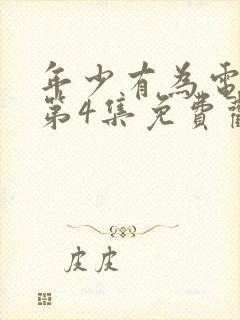 年少有為電
第4集免費
皮皮